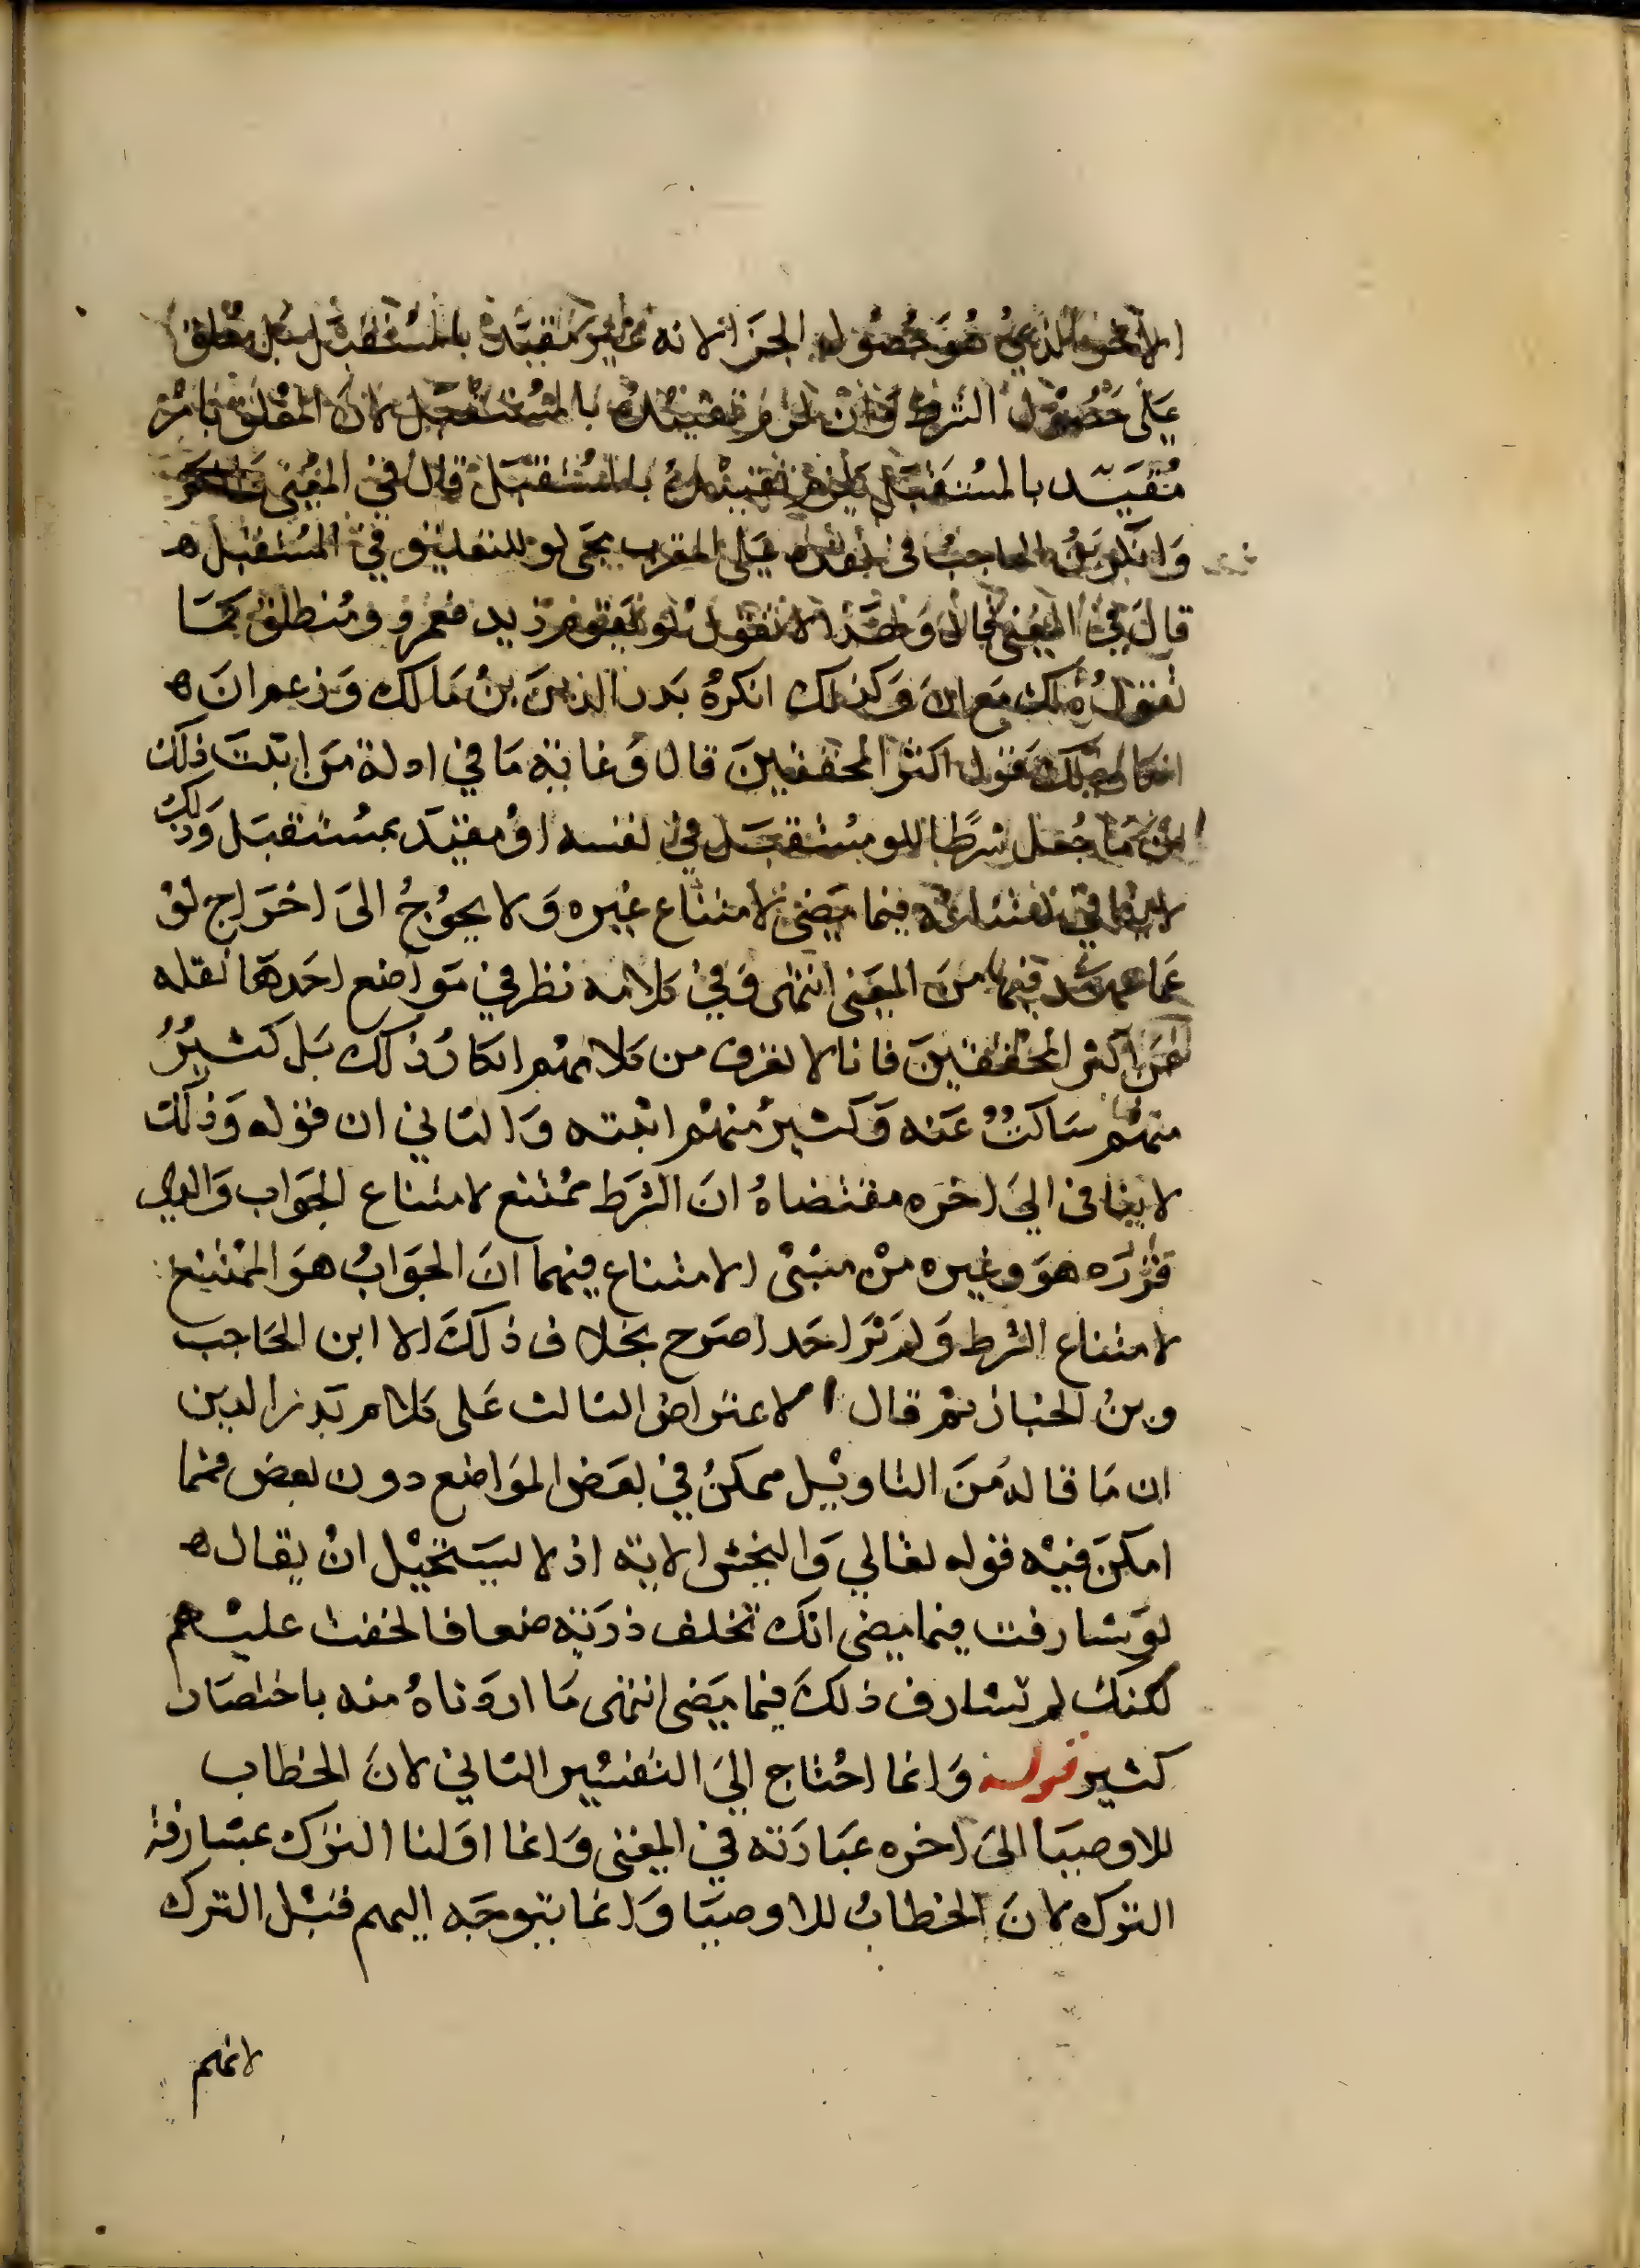 الاخر الذي هو حصول الجزا لانه غير مقيد بالمستقبل بل معلق
على حصول الشرط وان لزم تقييده بالمستقبل لان المعلق بامر
مُقيَد بالمستقبل يلزم تقييده بالمستقبل قال في المغني
وانكر بن الحاجب في نقده على المقرب مجى لو للتعليق في المستقبل ه
قال في المغني قال وَلهذا لا نقول لو يقوم زيد فعمرو ومُنطلق كما
نقول ذلك مع ان وكذلك انكرهُ بدر الدين بن مَالك وَزعم انَ ه
انكار ذلك قول اكثر المحققينَ قال وَغايته مَا في ادلة مَن اثبت ذلك
ان مَا جُعل شرطًا للو مستقبَل في نفسه اوْ مقيَد بمستقبَل وَذلك
لا ينافي امتناعه فيما مَضى لامتناع غيره وَلا يحوجُ الىَ اخرَاج لوْ
عَما عهد فيها منَ المعَنى انتهى وَفي كلامه نظر في مَواضع احَدهَا نقله
عَن اكثر المحققينَ فانا لا نعرف من كلامهم انكار ذلك بَل كثيرٌ
منهُم سَاكتٌ عَنه وَكثيرٌ منهُم اثبته وَالثاني ان قوله وَذلك
لا ينافي اليَ اخرَه مقتضاهُ انَ الشرَط ممُتنع لامتناع الجوَاب وَالذي
قرَّرَه هوَ وغيره منْ مثبتى الامتناع فيهما انَ الجوَابُ هوَ الممْتنع
لامتناع الشرط وَلم نَرَ احَدا صَرح بخلاف ذلكَ الا ابن الحَاجب
وبنُ الخباز ثم قال الاعتراض الثالث عَلى كلام بَدر الدين
ان مَا قاله منَ التاويْل ممكنُ في بعَض الموَاضع دون بعض فمما
امكنَ فيْه قوله تعالي وَاليخش الاية اذ لا يسَتحيْل انْ يقال ه
لوَ شارفت فيما مضى انكَ تخلف ذرَية ضعافا لخفت عليْهم
لكنك لم تشارف ذلكَ فيما مَضى انتهى مَا ارَدناهُ منه باختصَار
كثير قوله وَانما احْتاج الىَ التفسْير الثاني لانَ الخطاب
للاوصيَا الىَ اخره عبَارَته في المغنى وَانما اوَلنا الترَك بمشارفة
الترك لانَ الخطابُ للاوصيَا وَانما يتوجَه اليهم قبْل الترك
لانهم